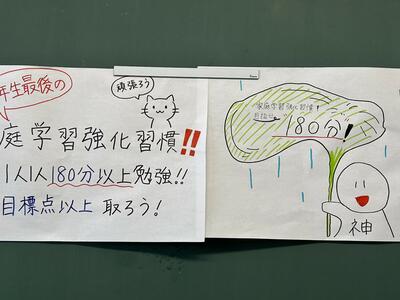 年生最後の
頑張ろう
庭学習強化習慣!!
1人1人180分以上勉強!!
目標点以上 取ろう!
家庭学習強化習慣!
目指せ
180分!
神